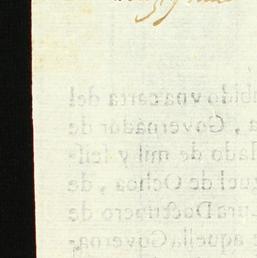 bido vna carta del
a, Governador de
lado de mil y seis-
guel de Ochoa, de
tura Doctrinero de
e aquella Governa-